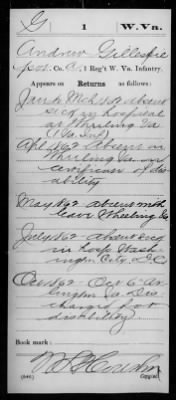 G | 1 | W. Va.
Andrew Gillespie
Co. A, 1 Reg't W. Va. Infantry.
Appears on Returns as follows:
Jan & Mch 1862 absent
sick in hospital
at Wheeling Va
(1 Va Inf)
Apl 1862 Absent in
Wheeling Va. on
certificate of dis-
ability
May 1862 absent with
leave Wheeling Va
July 1862 absent sick
in Hosp Wash-
ington City, D.C.
Oct 1862 Oct 6 Ar-
lington Va Dis-
charged for
disability
Book mark:
(546) Copyist.